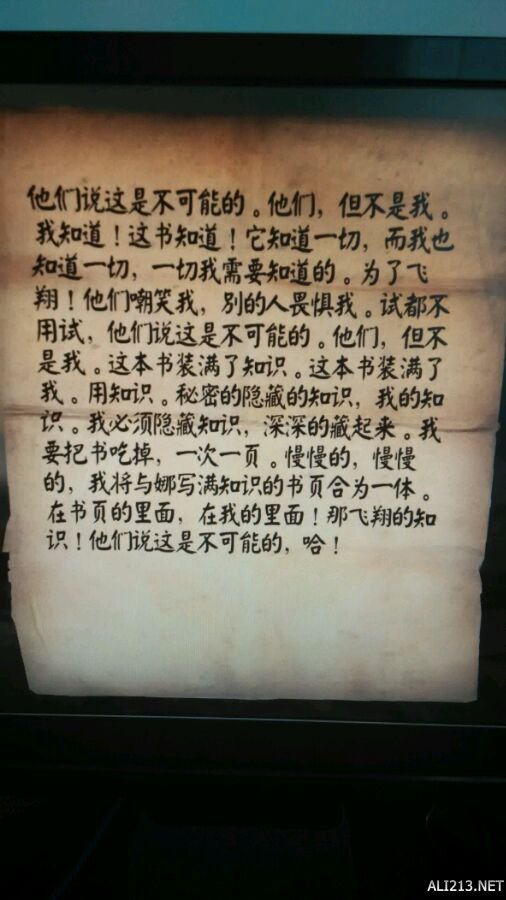 他们说这是不可能的。他们，但不是我。
我知道！这书知道！它知道一切，而我也
知道一切，一切我需要知道的。为了飞
翔！他们嘲笑我，别的人畏惧我。试都不
用试，他们说这是不可能的。他们，但不
是我。这本书装满了知识。这本书装满了
我。用知识。秘密的隐藏的知识，我的知
识。我必须隐藏知识，深深的藏起来。我
要把书吃掉，一次一页。慢慢的，慢慢
的，我将与娜写满知识的书页合为一体。
在书页的里面，在我的里面！那飞翔的知
识！他们说这是不可能的，哈！
ALI213.NET